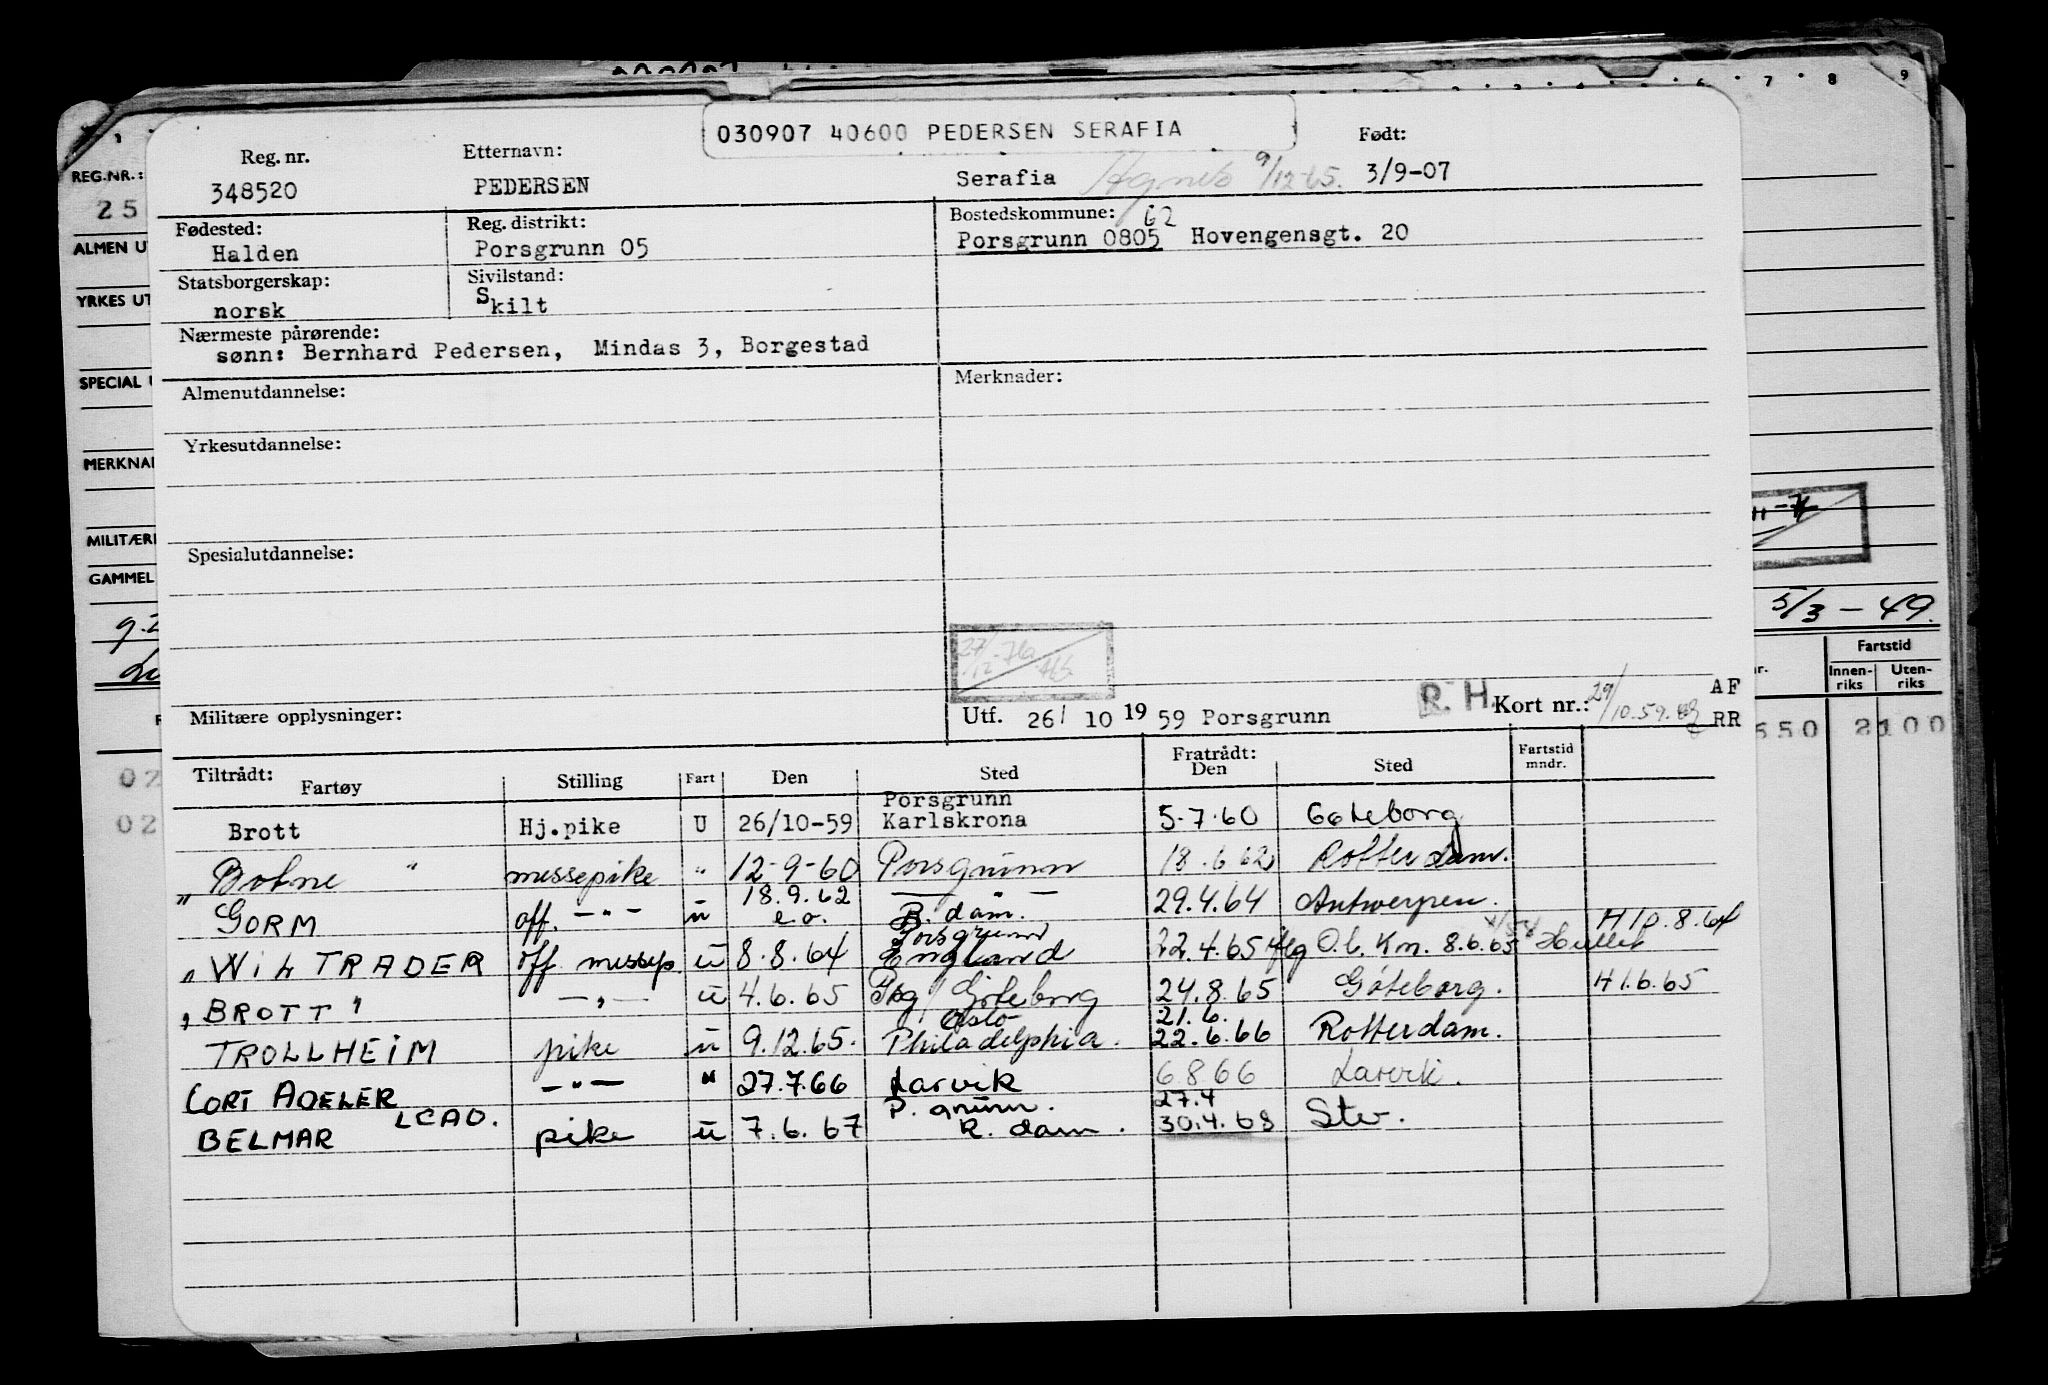 6 7 8 9
030907 40600 PEDERSEN SERAFIA
Reg. nr.
348520
Etternavn:
PEDERSEN
Serafia Agnes 9/12-65.
Født:
3/9-07
Fødested:
Halden
Reg. distrikt:
Porsgrunn 05
Bostedskommune: 62
Porsgrunn 0805 Hovengensgt. 20
Statsborgerskap:
norsk
Sivilstand:
Skilt
Nærmeste pårørende:
sønn: Bernhard Pedersen, Mindas 3, Borgestad
Almenutdannelse:
Merknader:
Yrkesutdannelse:
Spesialutdannelse:
Militære opplysninger:
Utf. 26/ 10 1959 Porsgrunn
R. H.
Kort nr.: 29/10.59.
AF
RR
Tiltrådt:
Fartøy Stilling Fart Den Sted Fratrådt: Den Sted Fartstid mndr.
Brott Hj.pike U 26/10-59 Porsgrunn Karlskrona 5.7.60 Göteborg
" Botne " messepike " 12-9-60 Porsgrunn 18.6.62 Rotterdam.
GORM off. -"- ü 18.9.62 e.o. — R.dam. 29.4.64 Antwerpen.
" WIL TRADER off messep ü 8.8.64 Porsgrunn England 22.4.65 flg O.b. Km. 8.6.65 H 10.8.64
" BROTT " -"- ü 4.6.65 Pbg/Göteborg 24.8.65 Göteborg. H 1.6.65
TROLLHEIM pike ü 9.12.65. Oslo Philadelphia. 21.6. 22.6.66 Rotterdam.
CORT ADELER -"- " 27.7.66 Larvik 6.8.66 Larvik.
BELMAR LCAO. pike ü 7.6.67 P.grunn. R.dam. 27.4 30.4.68 Stv.
REG.NR.:
25
ALMEN U
YRKES UT
SPECIAL
MERKNA
MILITÆR
GAMMEL
02
02
5/3 - 49.
Fartstid
Innen-riks Uten-riks
550 2100